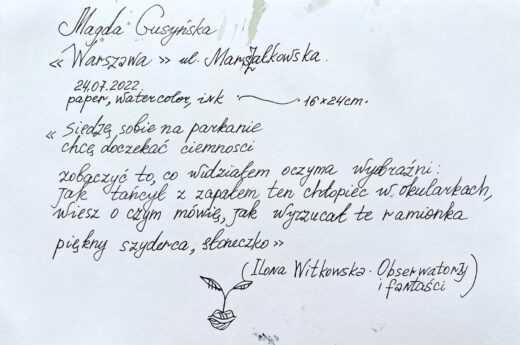 Magda Gusyńska
« Warszawa » ul. Marszałkowska.
24.07.2022
paper, watercolor, ink 16×24cm.
« siedzę sobie na parkanie
chcę doczekać ciemności
zobaczyć to, co widziałem oczyma wyobraźni:
jak tańczył z zapałem ten chłopiec w okularkach,
wiesz o czym mówię, jak wyrzucał te ramionka
piękny szyderca, słoneczko »
(Ilona Witkowska. Obserwatorzy
i fantaści)